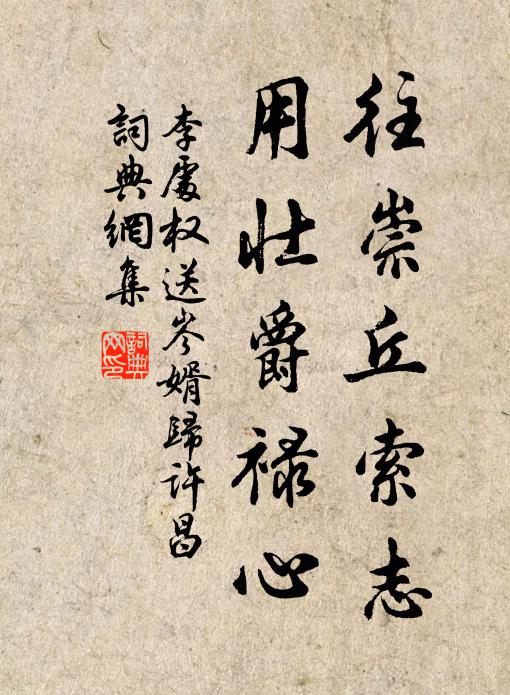 往崇丘索志
用壮爵禄心
李處权送岑婿歸许昌
詞典網集
詞典网印